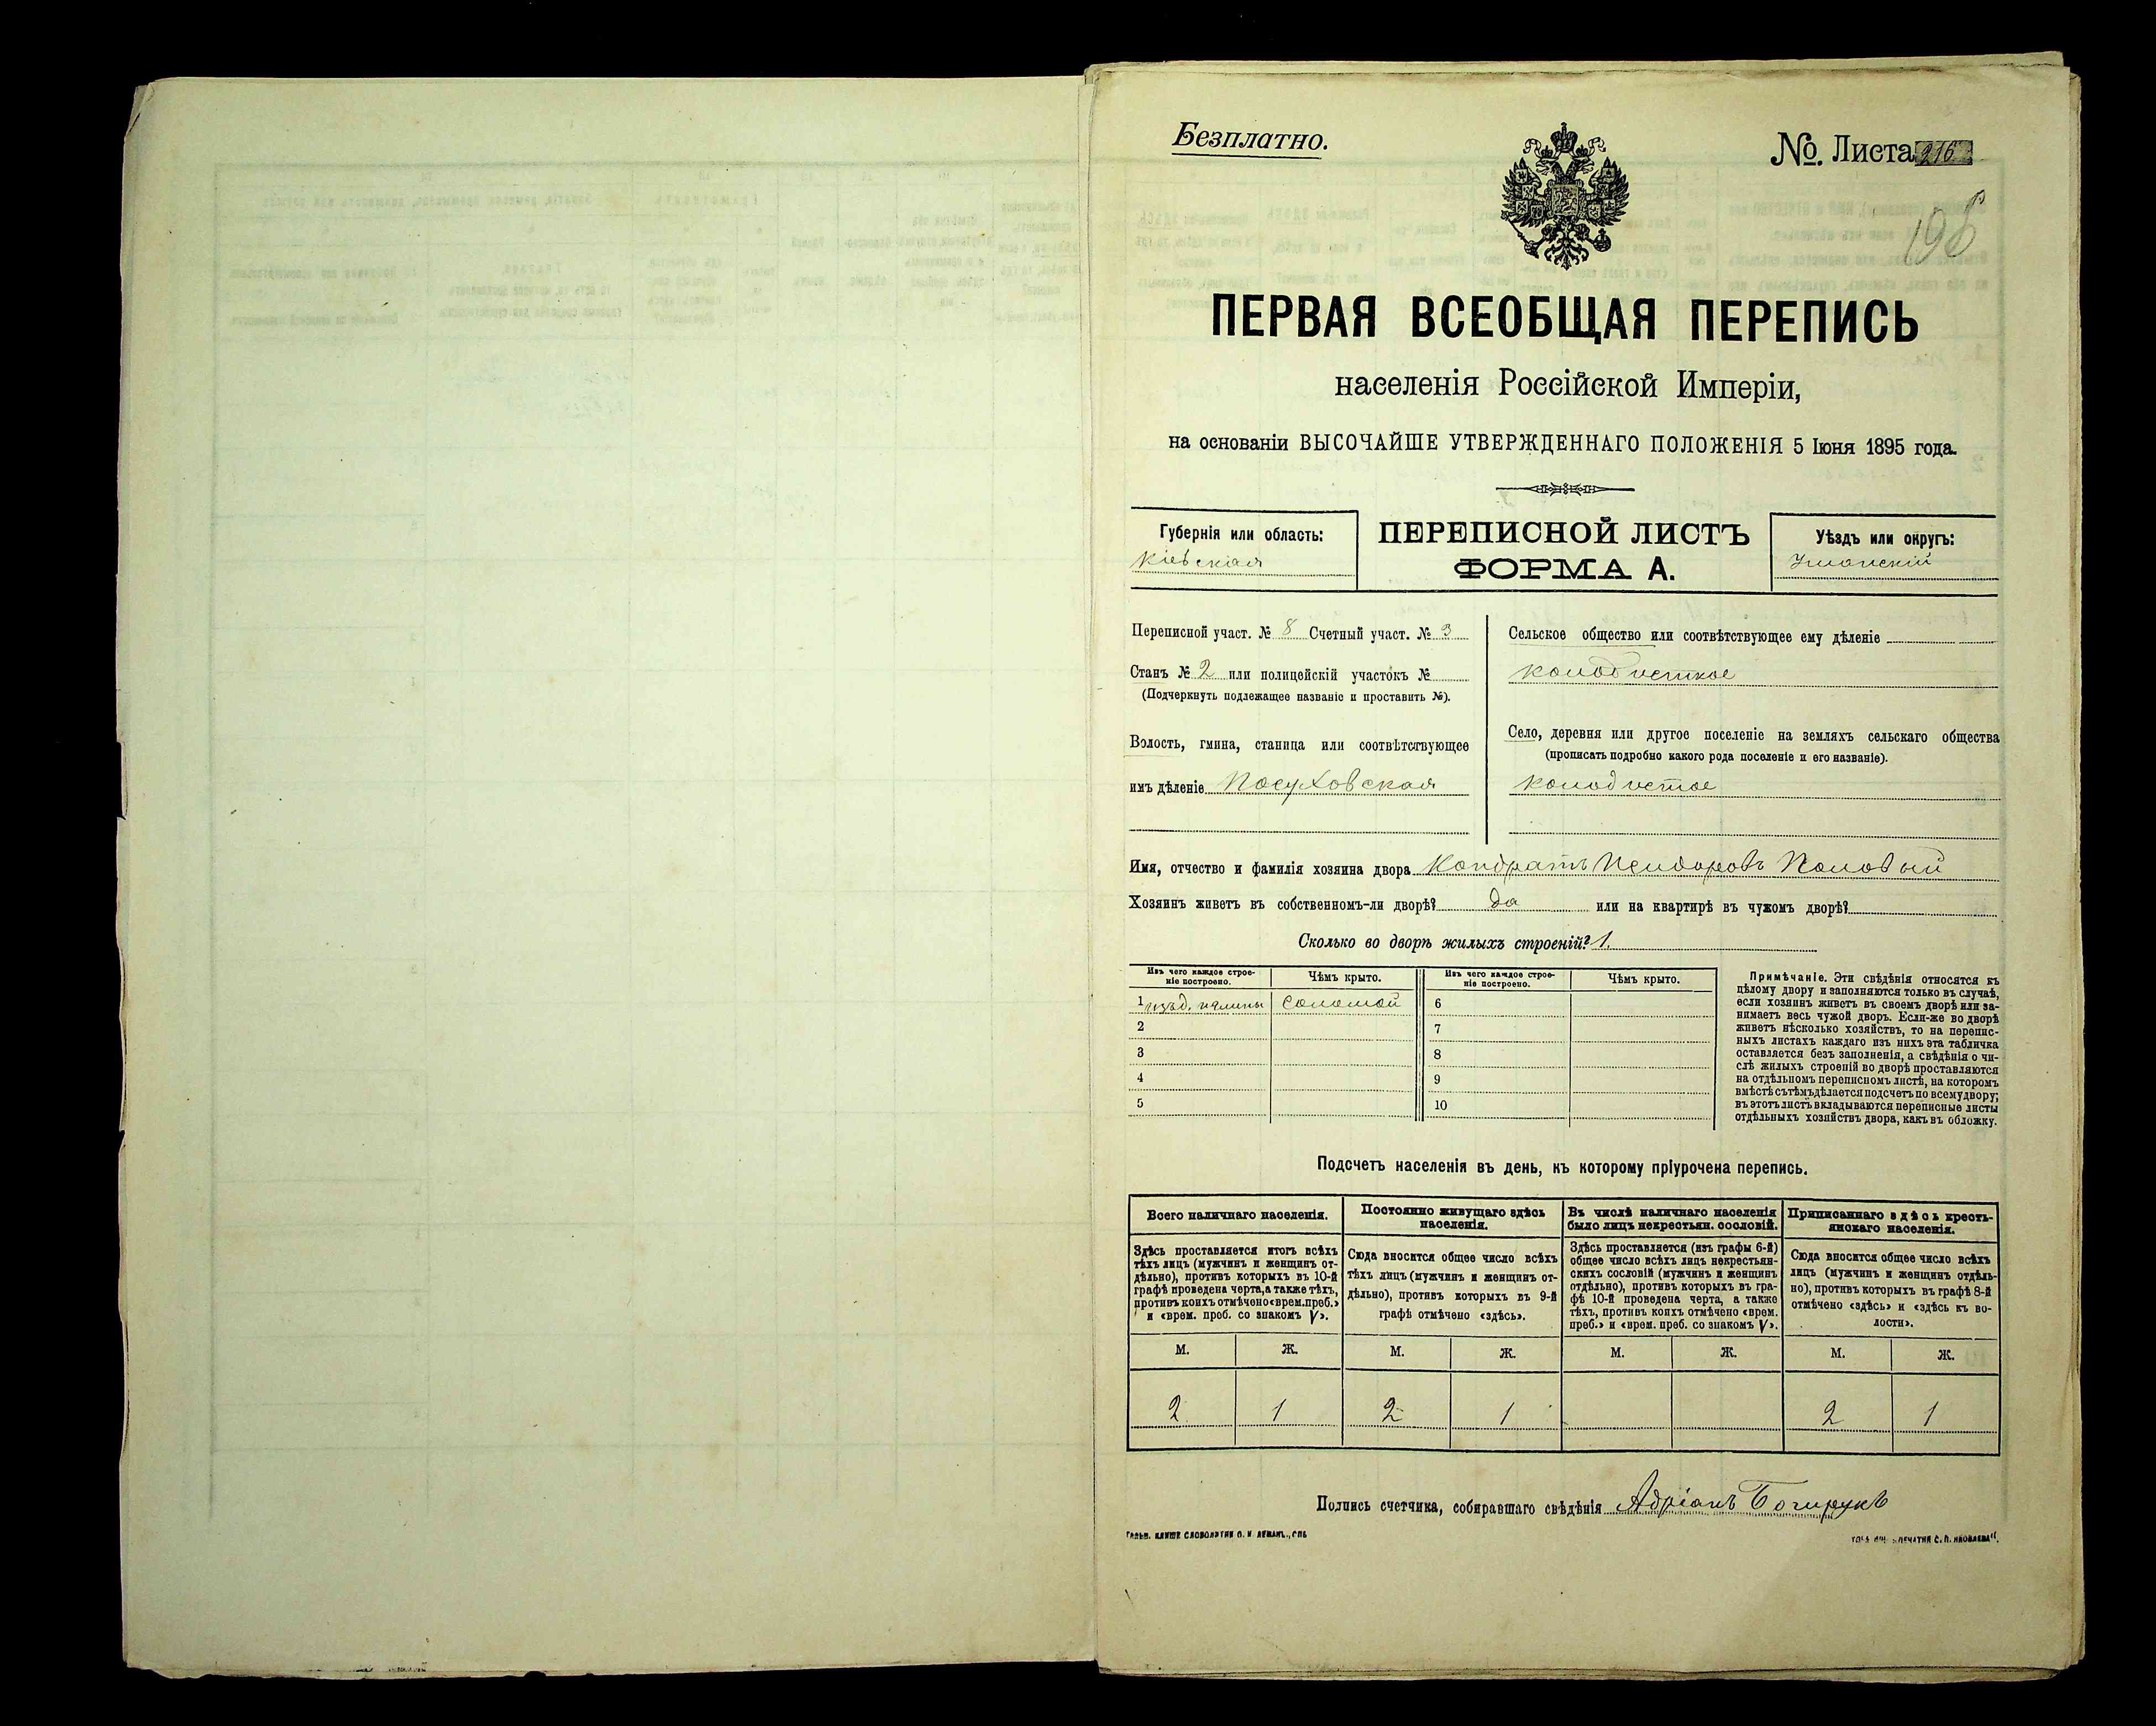 Безплатно.
№. Листа 216
198
ПЕРВАЯ ВСЕОБЩАЯ ПЕРЕПИСЬ
населенія Россійской Имперіи,
на основаніи ВЫСОЧАЙШЕ УТВЕРЖДЕННАГО ПОЛОЖЕНІЯ 5 Іюня 1895 года.
Губернія или область:
Кіевская
ПЕРЕПИСНОЙ ЛИСТЪ
ФОРМА А.
Уѣздъ или округъ:
Уманскій
Переписной участ. № 8 Счетный участ. № 3
Станъ № 2 или полицейскій участокъ №
(Подчеркнуть подлежащее названіе и проставить №).
Волость, гмина, станица или соотвѣтствующее
имъ дѣленіе Посуховская
Сельское общество или соотвѣтствующее ему дѣленіе
Колодисткое
Село, деревня или другое поселеніе на земляхъ сельскаго общества
(прописать подробно какого рода поселеніе и его названіе).
Колодистое
Имя, отчество и фамилія хозяина двора Кондратъ Исидоровъ Половый
Хозяинъ живетъ въ собственномъ-ли дворѣ? да или на квартирѣ въ чужомъ дворѣ?
Сколько во дворѣ жилыхъ строеній? 1.
Изъ чего каждое строе-
ніе построено.
Чѣмъ крыто.
Изъ чего каждое строе-
ніе построено.
Чѣмъ крыто.
1 изъ д. и глины Соломой 6
2 7
3 8
4 9
5 10
Примѣчаніе. Эти свѣдѣнія относятся къ
цѣлому двору и заполняются только въ случаѣ,
если хозяинъ живетъ въ своемъ дворѣ или за-
нимаетъ весь чужой дворъ. Если-же во дворѣ
живетъ нѣсколько хозяйствъ, то на перепис-
ныхъ листахъ каждаго изъ нихъ эта табличка
оставляется безъ заполненія, а свѣдѣнія о чи-
слѣ жилыхъ строеній во дворѣ проставляются
на отдѣльномъ переписномъ листѣ, на которомъ
вмѣстѣ съ тѣмъ дѣлается подсчетъ по всему двору;
въ этотъ листъ вкладываются переписные листы
отдѣльныхъ хозяйствъ двора, какъ въ обложку.
Подсчетъ населенія въ день, къ которому пріурочена перепись.
Всего наличнаго населенія.
Постоянно живущаго здѣсь
населенія.
Въ числѣ наличнаго населенія
было лицъ некрестьян. сословій.
Приписаннаго здѣсь кресть-
янскаго населенія.
Здѣсь проставляется итогъ всѣхъ
тѣхъ лицъ (мужчинъ и женщинъ от-
дѣльно), противъ которыхъ въ 10-й
графѣ проведена черта, а также тѣхъ,
противъ коихъ отмѣчено «врем. преб.»
и «врем. проб. со знакомъ V».
Сюда вносится общее число всѣхъ
тѣхъ лицъ (мужчинъ и женщинъ от-
дѣльно), противъ которыхъ въ 9-й
графѣ отмѣчено «здѣсь».
Здѣсь проставляется (изъ графы 6-й)
общее число всѣхъ лицъ некрестьян-
скихъ сословій (мужчинъ и женщинъ
отдѣльно), противъ которыхъ въ гра-
фѣ 10-й проведена черта, а также
тѣхъ, противъ коихъ отмѣчено «врем.
преб.» и «врем. преб. со знакомъ V».
Сюда вносится общее число всѣхъ
лицъ (мужчинъ и женщинъ отдѣль-
но), противъ которыхъ въ графѣ 8-й
отмѣчено «здѣсь» и «здѣсь къ во-
лости».
М. Ж. М. Ж. М. Ж. М. Ж.
2 1 2 1 2 1
Подпись счетчика, собиравшаго свѣдѣнія Адріанъ